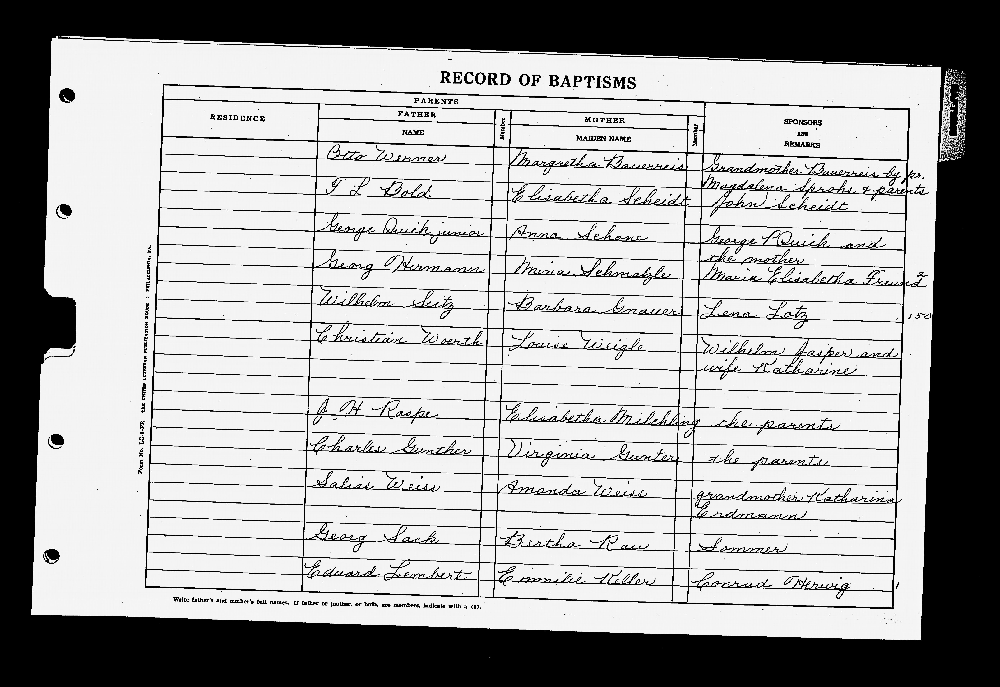 RECORD OF BAPTISMS
PARENTS
RESIDENCE FATHER MOTHER SPONSORS
AND
NAME Member MAIDEN NAME Member REMARKS
Otto Wenner Margretha Bauerreis Grandmother Bauerreis by pr.
Magdalena Sprohs & parents
T L Bold Elisabetha Scheidt John Scheidt
George Quick junior Anna Schone George P Quick and
the mother
Georg Hermann Mina Schmalzle Maria Elisabetha Freund
Wilhelm Seitz Barbara Gnauer Lena Lotz 150
Christian Woerth Louise Weigle Wilhelm Jasper and
wife Katharine
J H Raspe Elisabetha Milchling the parents
Charles Gunther Virginia Gunter the parents
Weiss Amanda Weiss grandmother Katharina
Erdmann
Georg Sack Bertha Rau Sommer
Eduard Lembert Emmilie Keller Conrad Herwig
Write father's and mother's full names. If father or mother, or both, are members, indicate with a